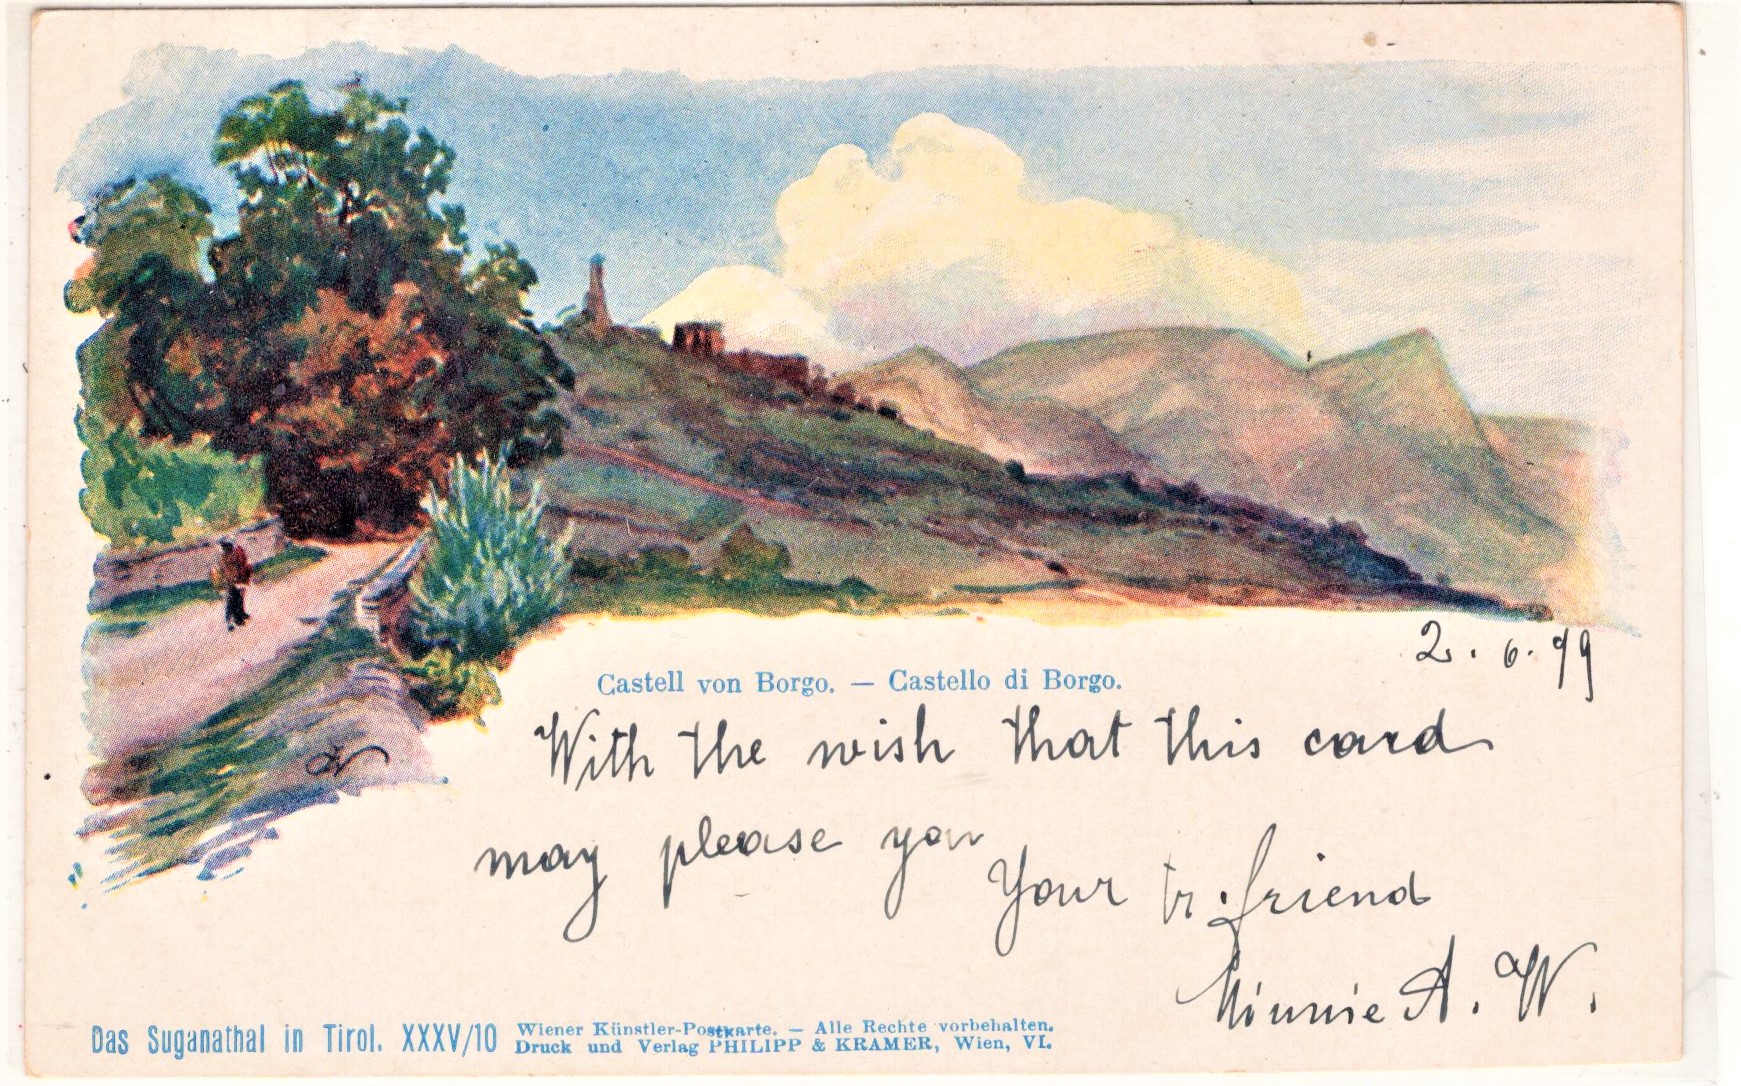 2. 6. 99
Castell von Borgo. — Castello di Borgo.
With the wish that this card
may please you
Your tr. friend
Minnie A. W.
Das Suganathal in Tirol. XXXV/10
Wiener Künstler-Postkarte. — Alle Rechte vorbehalten.
Druck und Verlag PHILIPP & KRAMER, Wien, VI.